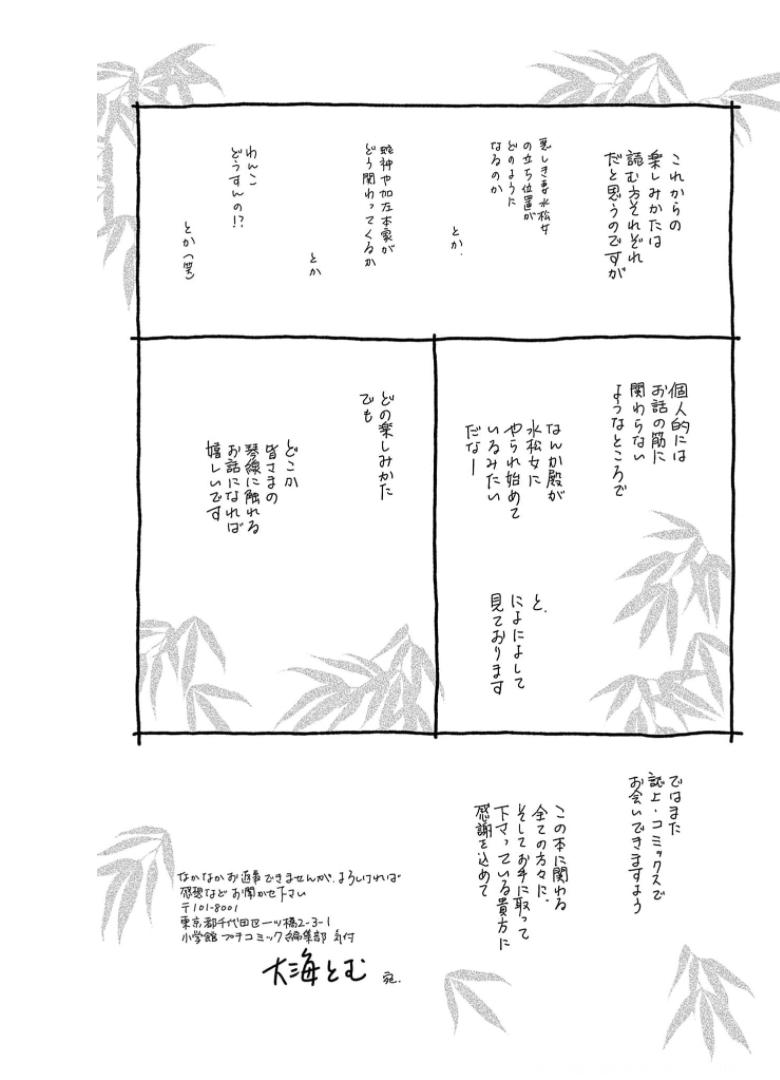 これからの
楽しみかたは
読む方それぞれ
だと思うのですが
悪しき妻水松女
の立ち位置が
どのように
なるのか
とか.
蛇神や加左本家が
どう関わってくるか
とか
わんこ
どうすんの!?
とか(笑)
個人的には
お話の筋に
関わらない
ようなところで
なんか殿が
水松女に
やられ始めて
いるみたい
だなー
と、
によによして
見ております
どの楽しみかた
でも
どこか
皆さまの
琴線に触れる
お話になれば
嬉しいです
ではまた
誌上・コミックスで
お会いできますよう
この本に関わる
全ての方々に.
そしてお手に取って
下さっている貴方に
感謝を込めて
なかなかお返事できませんが、よろしければ
感想など お聞かせ下さい
〒101-8001
東京都千代田区一ツ橋2-3-1
小学館 プチコミック編集部 気付
大海とむ 宛.